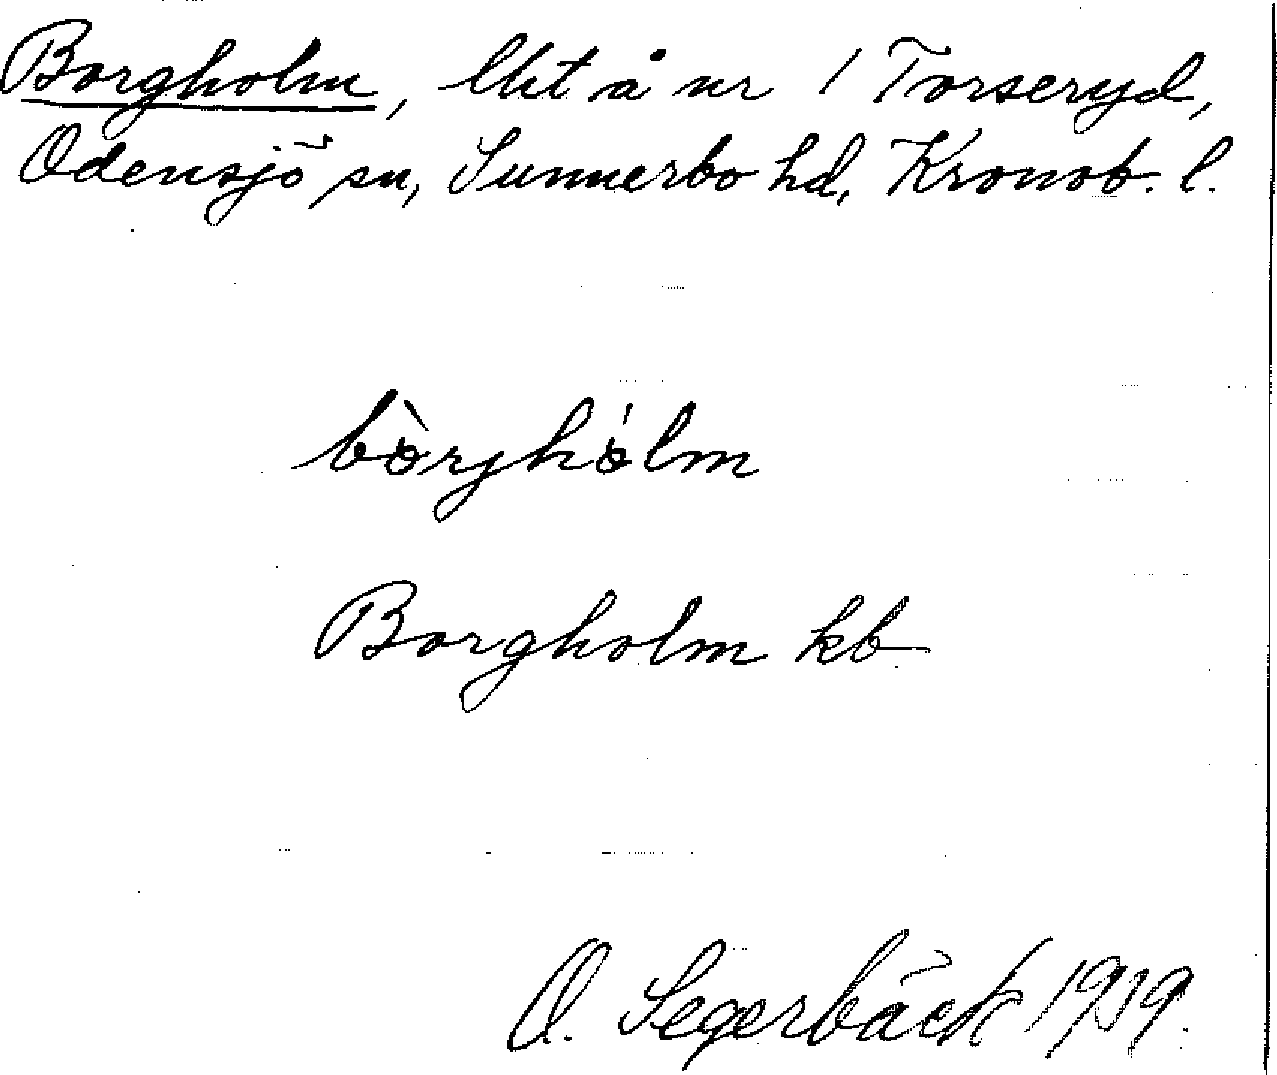 Borgholm, lht å nr 1 Torseryd,
Odensjö sn, Sunnerbo hd, Kronob. l.
bòrjhólm
Borgholm kb
O. Segerbäck 1919.